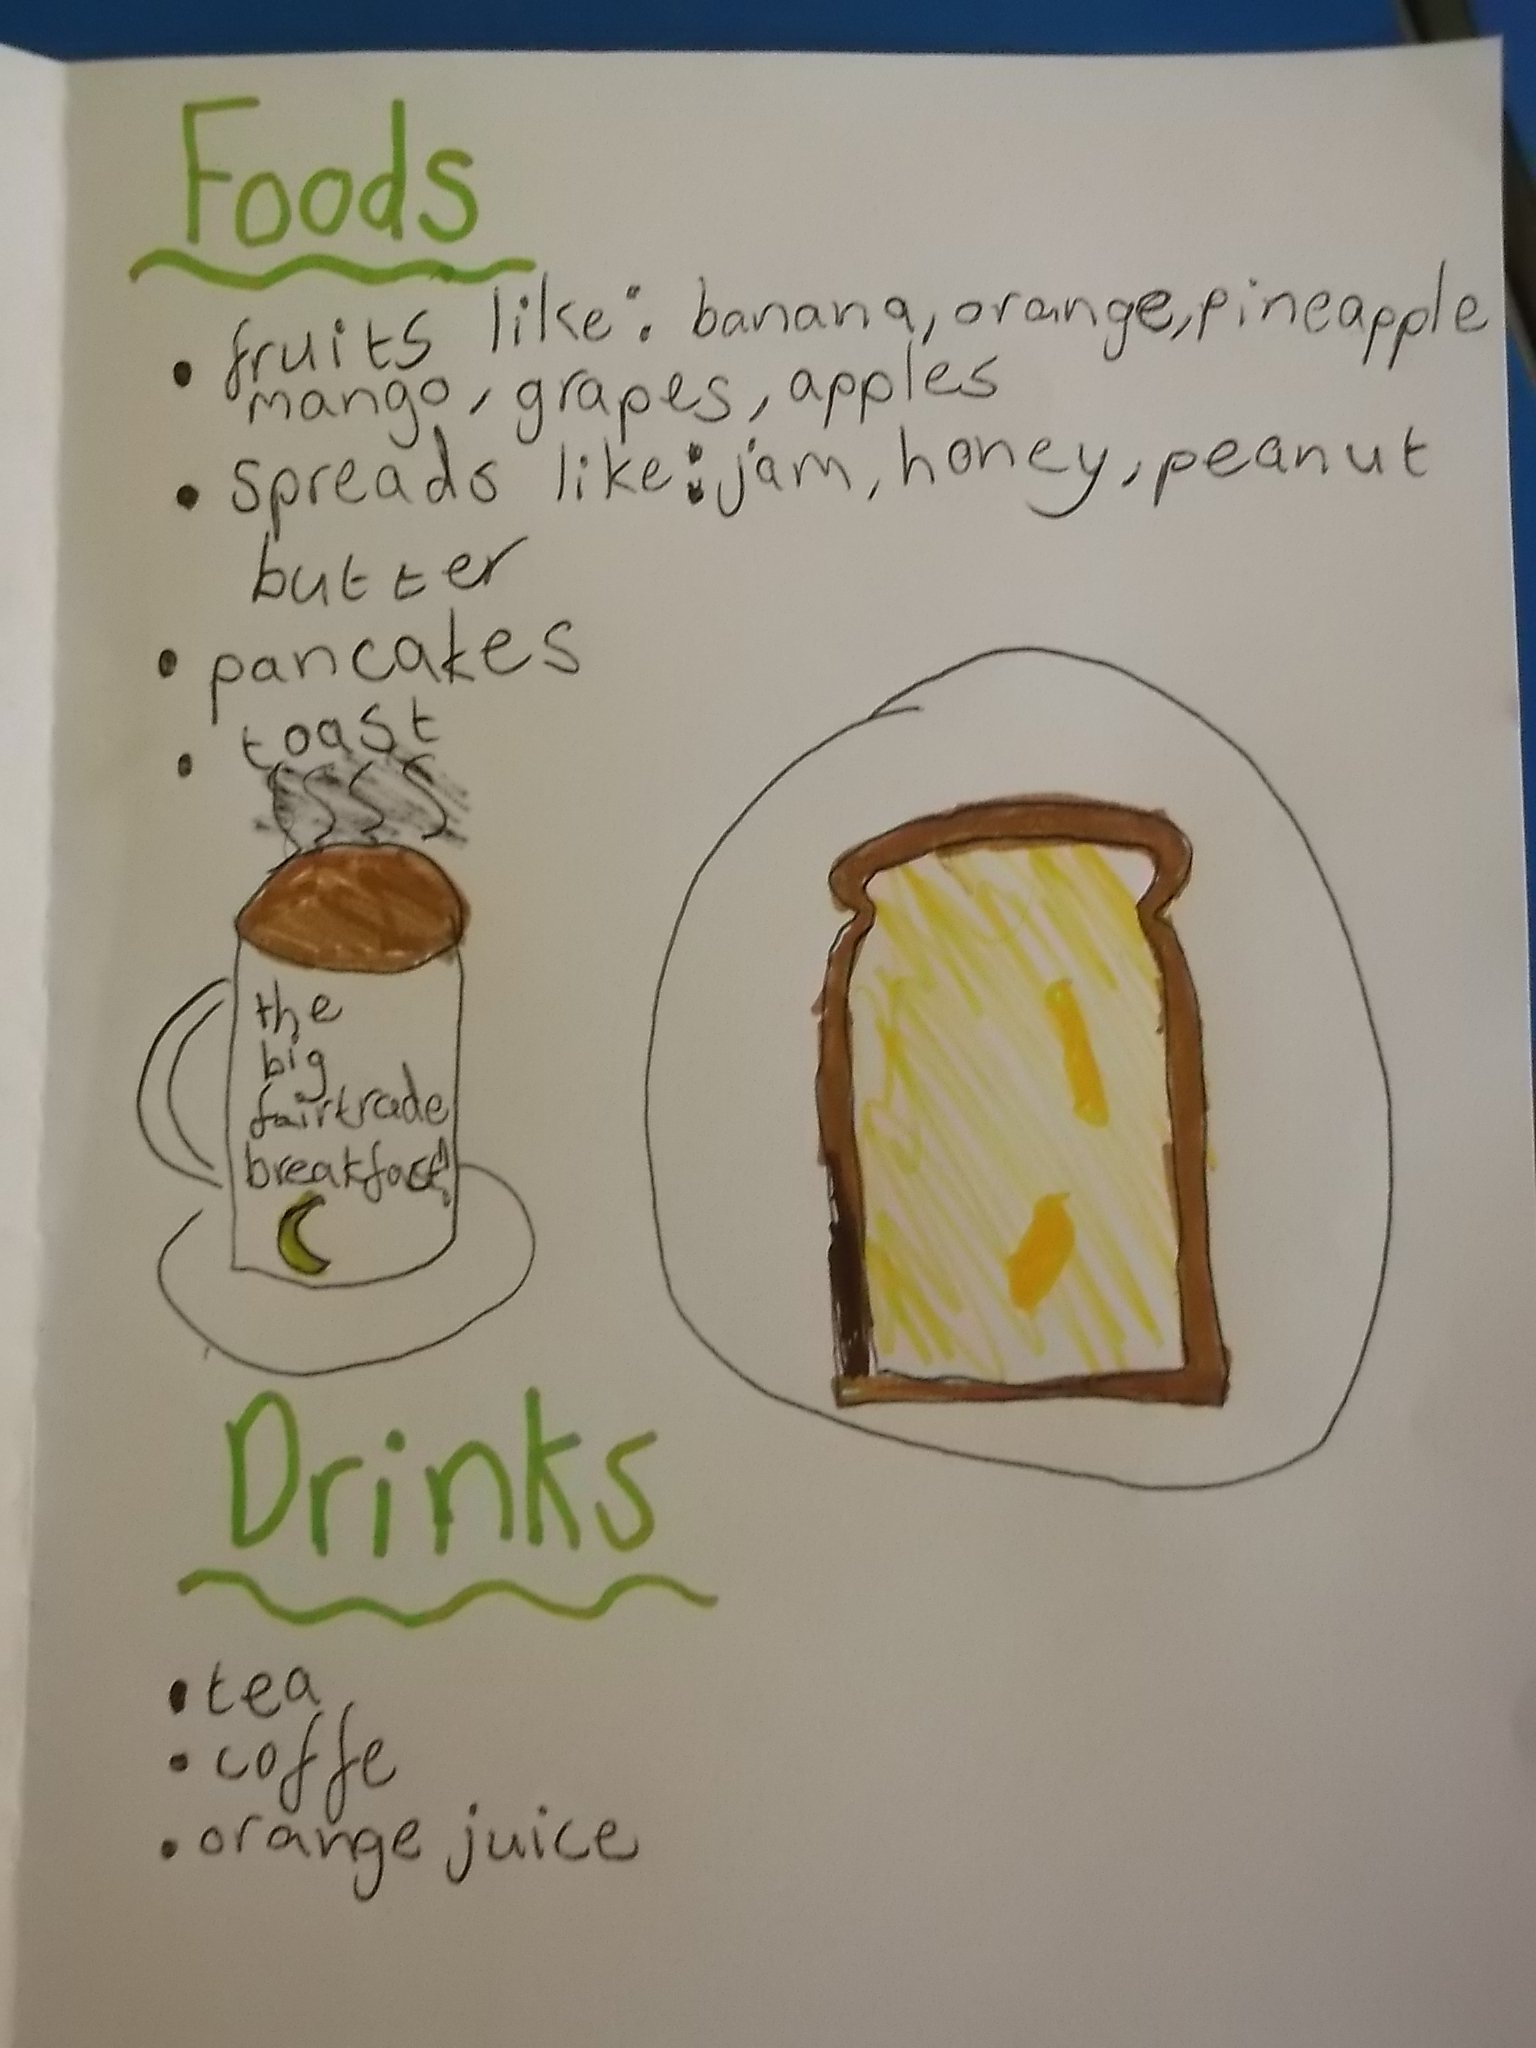 Foods
• fruits like: banana, orange, pineapple
mango, grapes, apples
• spreads like: jam, honey, peanut
butter
• pancakes
• toast
the
big
fairtrade
breakfast!
Drinks
• tea
• coffe
• orange juice